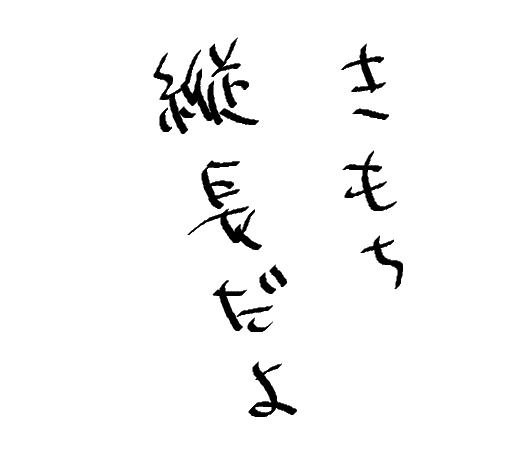 きもち
縦長だよ